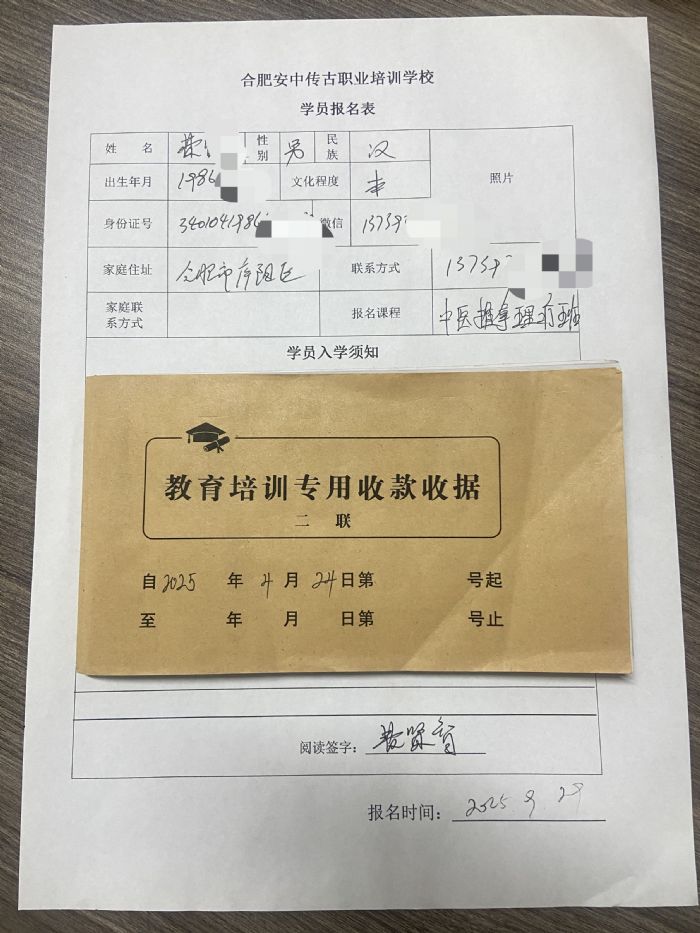 合肥安中传古职业培训学校
学员报名表
姓 名 性别 男 民族 汉 照片
出生年月 1986 文化程度 本
身份证号 340104198 微信 13739
家庭住址 合肥市庐阳区 联系方式 13739
家庭联系方式 报名课程 中医推拿理疗班
学员入学须知
教育培训专用收款收据
二 联
自2025 年 4 月 24 日第 号起
至 年 月 日第 号止
阅读签字:
报名时间: 2025. 9. 29